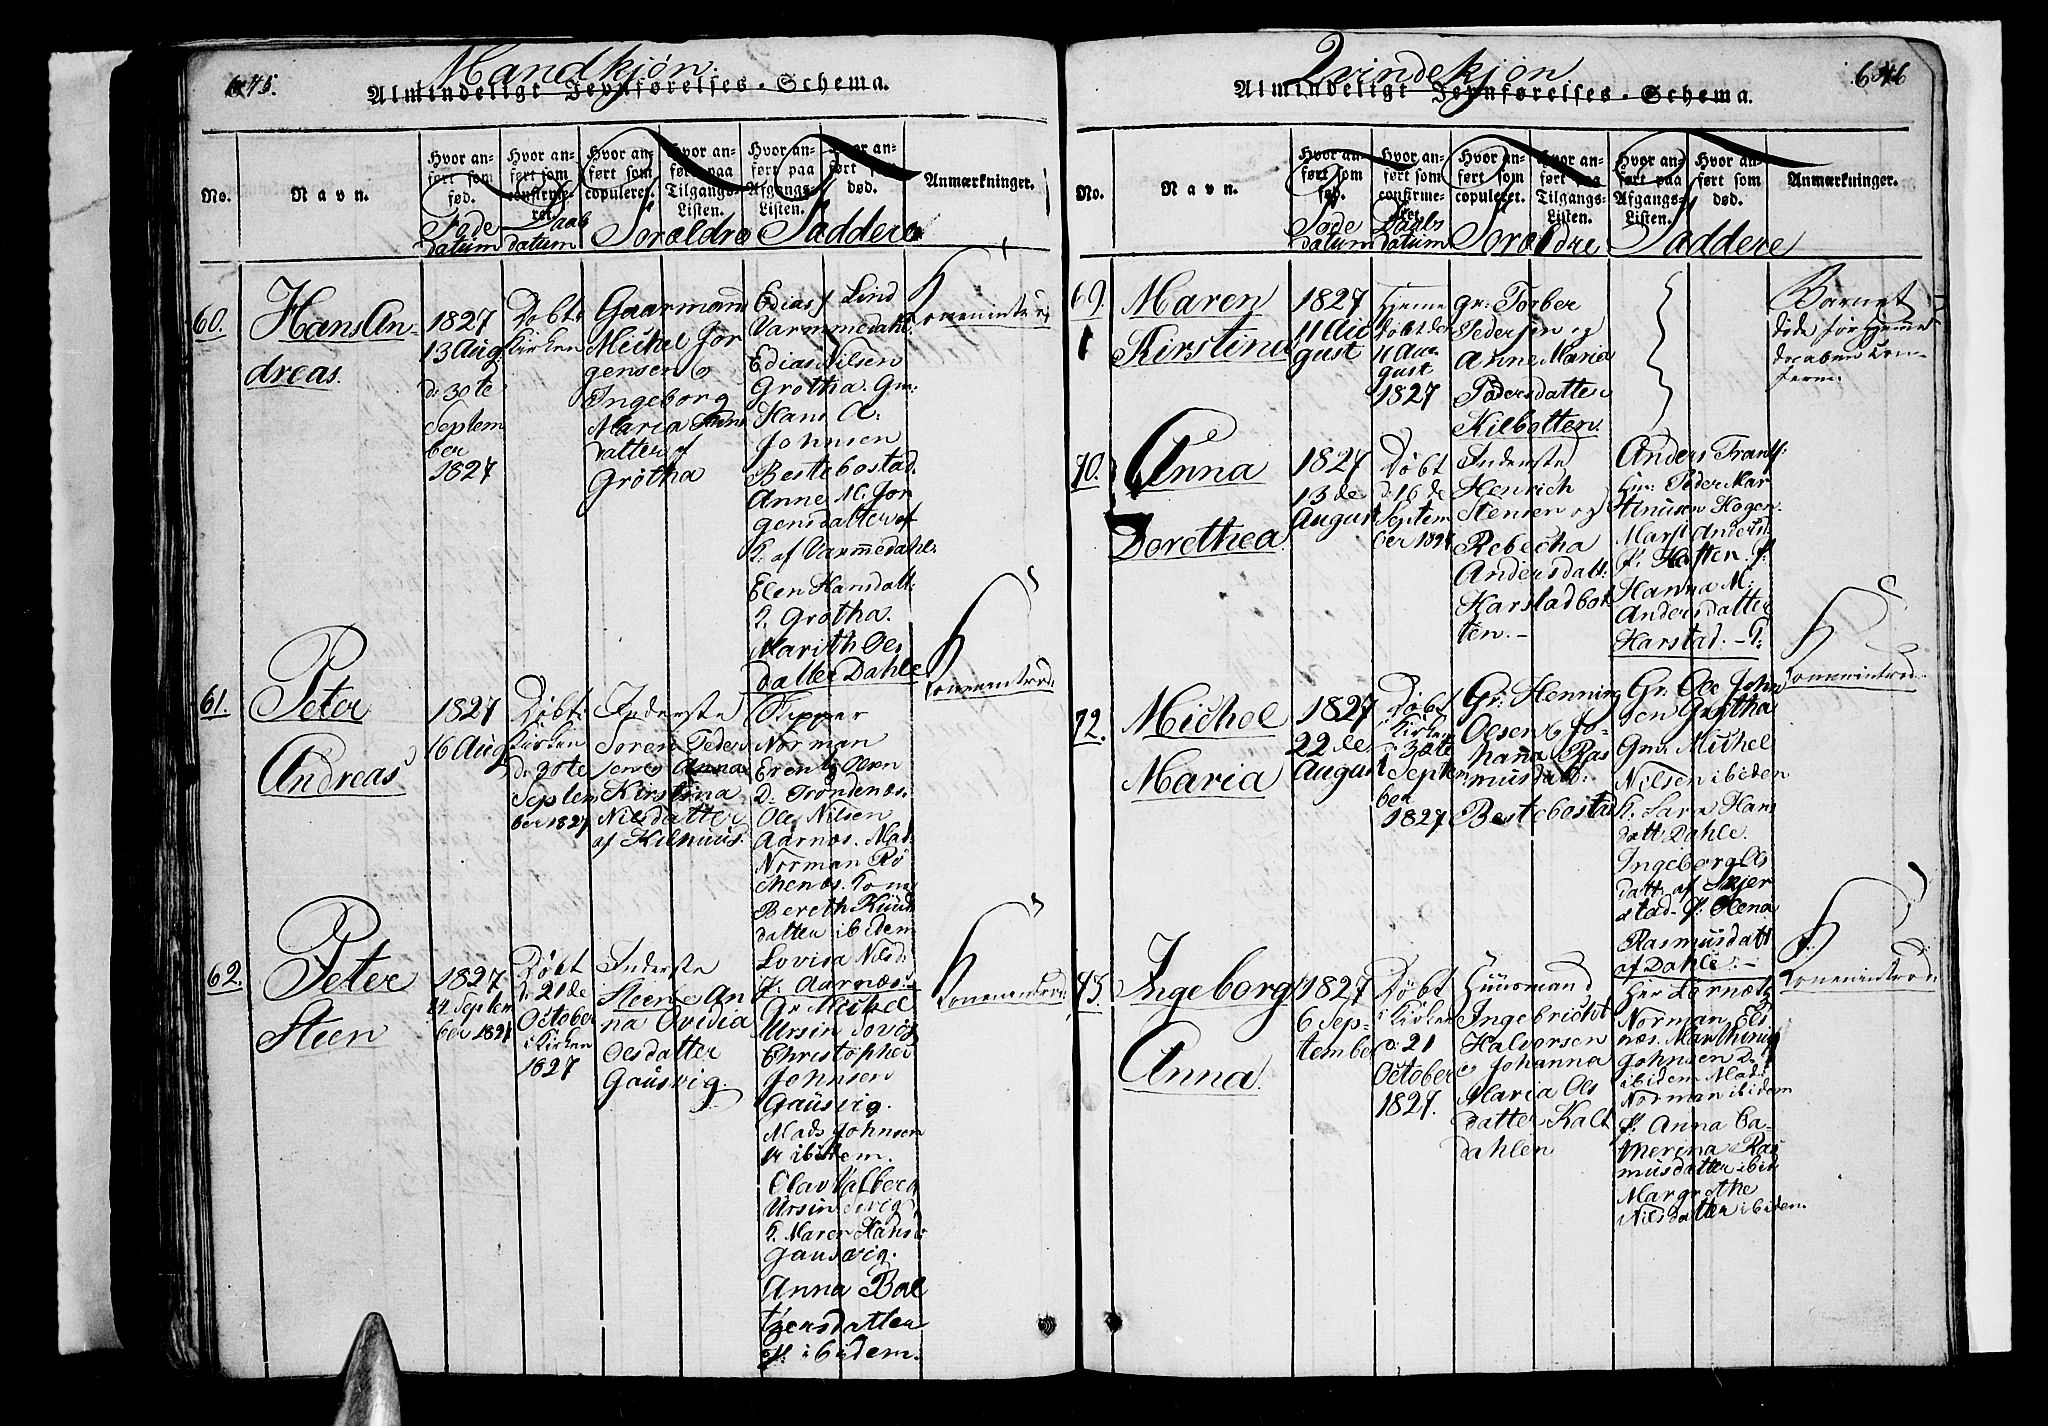 645.
Mandkjøn.
Almindeligt Jevnførelses-Schema.
No.
Navn.
Hvor an-
ført som
fød.
Føde
datum
Hvor an-
ført som
confirme-
ret.
Daab
datum
Hvor an-
ført som
copuleret.
Hvor an-
ført paa
Tilgangs-
Listen.
Forældre
Hvor an-
ført paa
Afgangs-
Listen.
Hvor an-
ført som
død.
Faddere
Anmærkninger.
60.
Hans An-
dreas.
1827
13 Aug
d: 30te
Septem
ber
1827
Døbt i
Kirken
Gaarmand
Michel Jor
gensen og
Ingeborg
Maria
datter af
Grøtha
Edias Lind
Varmmedahl.
Edias Nilsen
Grøtha. Gm:
Hans A:
Johnsen
Bestebostad.
Anne M. Jor
gensdatter af
K. af Varmedahl.
Elen Hansdatt.
K. Grøtha.
Marith Oes
datter Dahle
K
Koneninterd
61.
Peter
Andreas.
1827
16 Aug
Døbt i
Kirken
d: 30te
Septem
ber 1827
Inderste
Soren Peder
sen og Anna
Kirstina
Nilsdatter
af Kilhuus.
Skipper
Norman
Erents Olsen
D. Trondenæs.
Ole Nilsen
Aarnæs. Mad.
Norman Rø
chenæs. Kone
Bereth Knud
datter ibidem
Lovisa Nilsd:
P. Aarnæs.
K
Koneninterd:
62.
Peter
Steen
1827
24 Septem
ber 1827
Døbt
d: 21de
October
i Kirken
1827
Inderste
Steen e An
na Ovidia
Oesdatter
Gausvig.
Gr Michel
Ursin Sovig
Christopher
Johnsen
Gausvig.
Mads Johnsen
ibidem.
Olav Valberg
Ursin Sovig
K. Maren Hansd
Gausvig.
Anna Bal
tzersdatter
P. ibidem.
K
Koneninterd:
646
Qvindekjøn
Almindeligt Jevnførelses-Schema.
No.
Navn.
Hvor an-
ført som
fød.
Føde
datum
Hvor an-
ført som
confirme-
ret.
Daabs
datum
Hvor an-
ført som
copuleret.
Hvor an-
ført paa
Tilgangs-
Listen.
Forældre
Hvor an-
ført paa
Afgangs-
Listen.
Hvor an-
ført som
død.
Faddere
Anmærkninger.
69.
Maren
Kirstina
1827
11 Au
gust
Hjeme
Døbt den
11 Au
gust
1827
gr: Torber
Pedersen og
Anne Maria
Pedersdatter
Kilbotten.
Barnet
døde før Hjeme
daaben kon-
ferm:
70.
Anna
Dorethea
1827
13 de
August
Døbt
d. 16 de
Septem
ber 1827
Inderste
Henrich
Stensen og
Rebecha
Andersdatt:
Harstadbot
ten. –
Anders Frantz:
Peder Mar
tinusen Hogen.
Mars Anders
P. Hasten. P:
Hanna M:
Andersdatter
Harstad. – P:
K
Koneninterd.
72.
Michel
Maria
1827
22 de
August
Døbt
i Kirken
d: 30te
Septem
ber
1827
Gr: Henning
Olsen & Jo-
hanna Ras
musdatt:
Bestebostad
Gr. Ole John
sen Grøtha
Gm: Michel
Nilsen ibidem
K. Sara Hans
datt Dahle.
Ingeborg Els
datt. af Skjer
stad- P. Elena
Rasmusdatt
af Dahle. –
K
Koneninterd
75.
Ingeborg
Anna.
1827
6 Sep-
tember
Døbt
i Kirken
d. 21
October
1827.
Huusmand
Ingebricht
Halvorsen
e Johanna
Maria Oes
datter Kalt
dahlen
Her Lornætz
Norman Els
næs. Marthinus
Johnsen D.
ibidem Mad:
Norman ibidem
P. Anna Ca-
therina Ras
musdatter ibid
Margrethe
Nilsdatter ibidem.